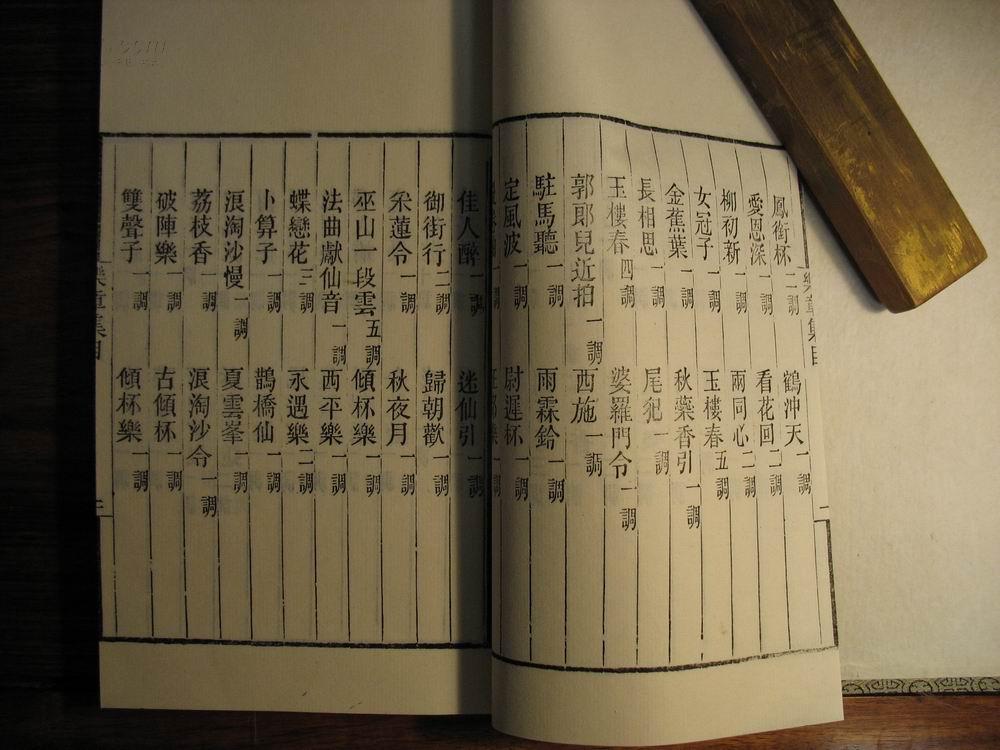 樂章集目
鳳銜杯 二調 鶴沖天 一調
愛恩深 一調 看花回 二調
柳初新 一調 兩同心 二調
女冠子 一調 玉樓春 五調
金蕉葉 一調 秋蘂香引 一調
長相思 一調 尾犯 一調
玉樓春 四調 婆羅門令 一調
郭郎兒近拍 一調 西施 一調
駐馬聽 一調 雨霖鈴 一調
定風波 一調 尉遲杯 一調
佳人醉 一調 迷仙引 一調
御街行 二調 歸朝歡 一調
采蓮令 一調 秋夜月 一調
巫山一段雲 五調 傾杯樂 一調
法曲獻仙音 一調 西平樂 一調
蝶戀花 三調 永遇樂 二調
卜算子 一調 鵲橋仙 一調
浪淘沙慢 一調 夏雲峯 一調
荔枝香 一調 浪淘沙令 一調
破陣樂 一調 古傾杯 一調
雙聲子 一調 傾杯樂 一調
樂章集目